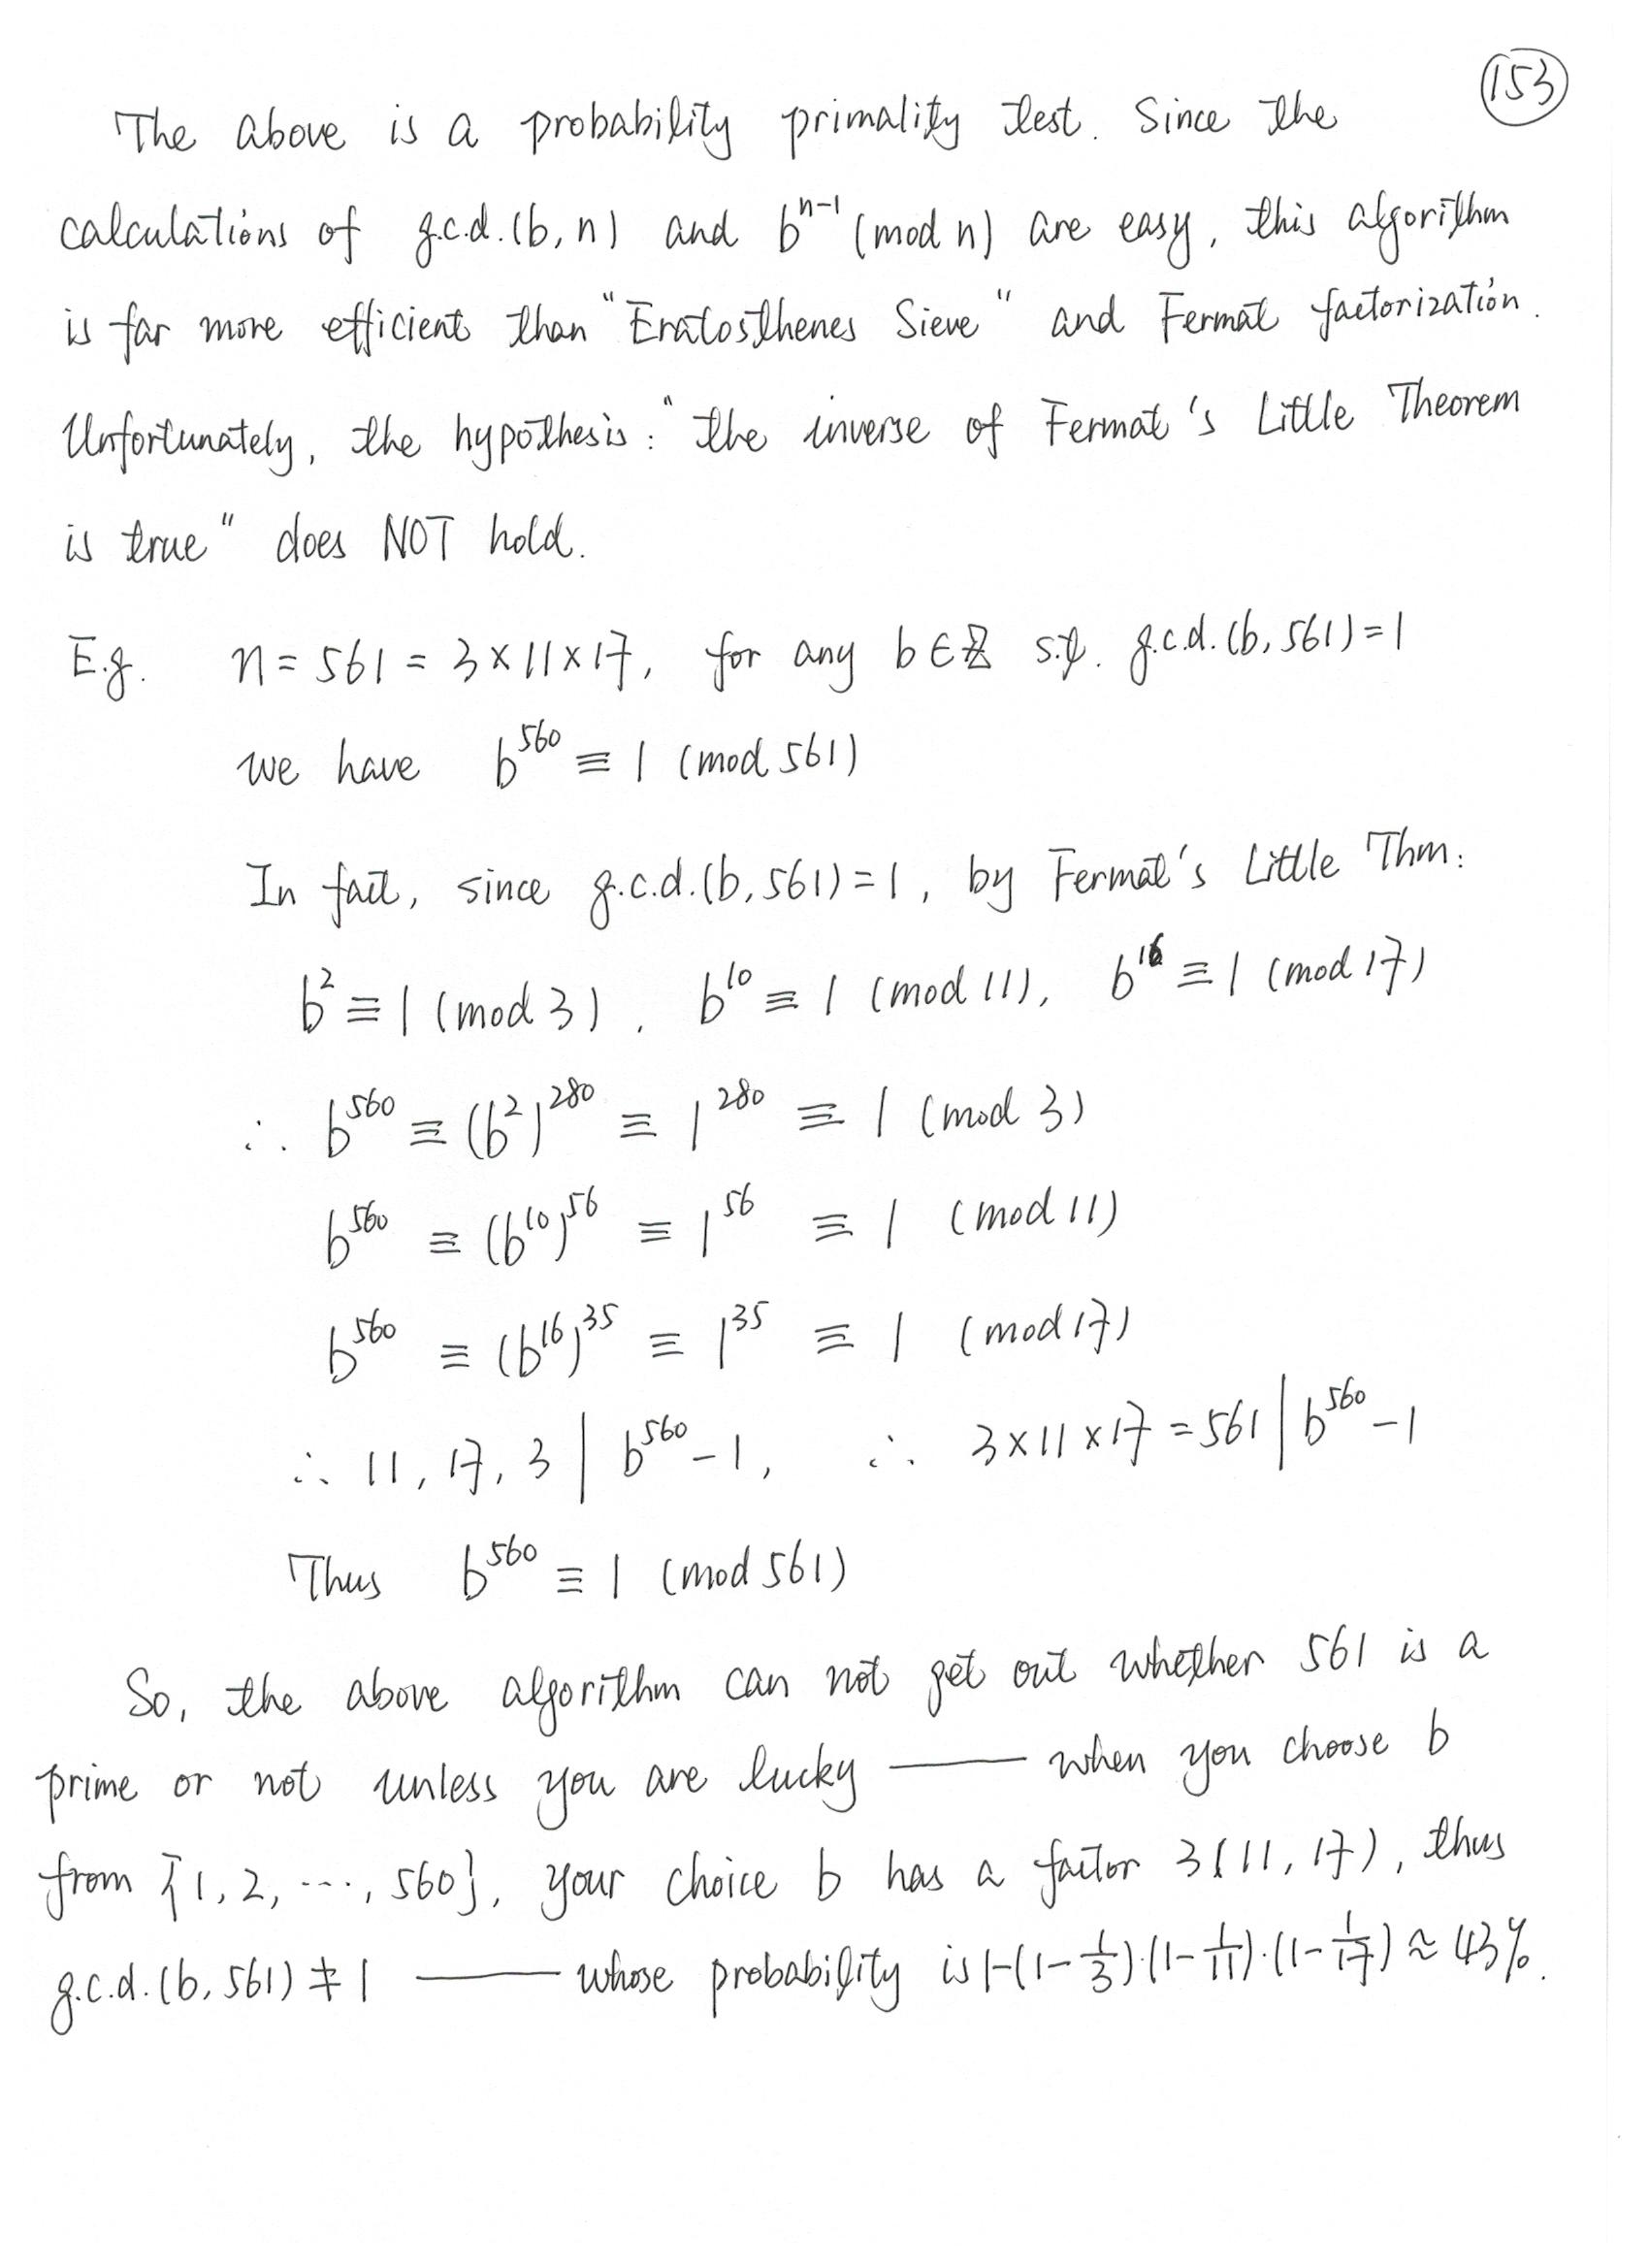 153
The above is a probability primality test. Since the
calculations of g.c.d.(b, n) and b^{n-1} (mod n) are easy, this algorithm
is far more efficient than "Eratosthenes Sieve" and Fermat factorization.
Unfortunately, the hypothesis: "the inverse of Fermat's Little Theorem
is true" does NOT hold.
E.g. n = 561 = 3×11×17, for any b∈ℤ s.t. g.c.d.(b, 561)=1
we have b^{560} ≡ 1 (mod 561)
In fact, since g.c.d.(b, 561)=1, by Fermat's Little Thm:
b^2 ≡ 1 (mod 3), b^{10} ≡ 1 (mod 11), b^{16} ≡ 1 (mod 17)
∴ b^{560} ≡ (b^2)^{280} ≡ 1^{280} ≡ 1 (mod 3)
b^{560} ≡ (b^{10})^{56} ≡ 1^{56} ≡ 1 (mod 11)
b^{560} ≡ (b^{16})^{35} ≡ 1^{35} ≡ 1 (mod 17)
∴ 11, 17, 3 | b^{560} - 1, ∴ 3×11×17 = 561 | b^{560} - 1
Thus b^{560} ≡ 1 (mod 561)
So, the above algorithm can not get out whether 561 is a
prime or not unless you are lucky — when you choose b
from {1, 2, ..., 560}, your choice b has a factor 3 (11, 17), thus
g.c.d.(b, 561) ≠ 1 — whose probability is 1-(1-1/3)·(1-1/11)·(1-1/17) ≈ 43%.